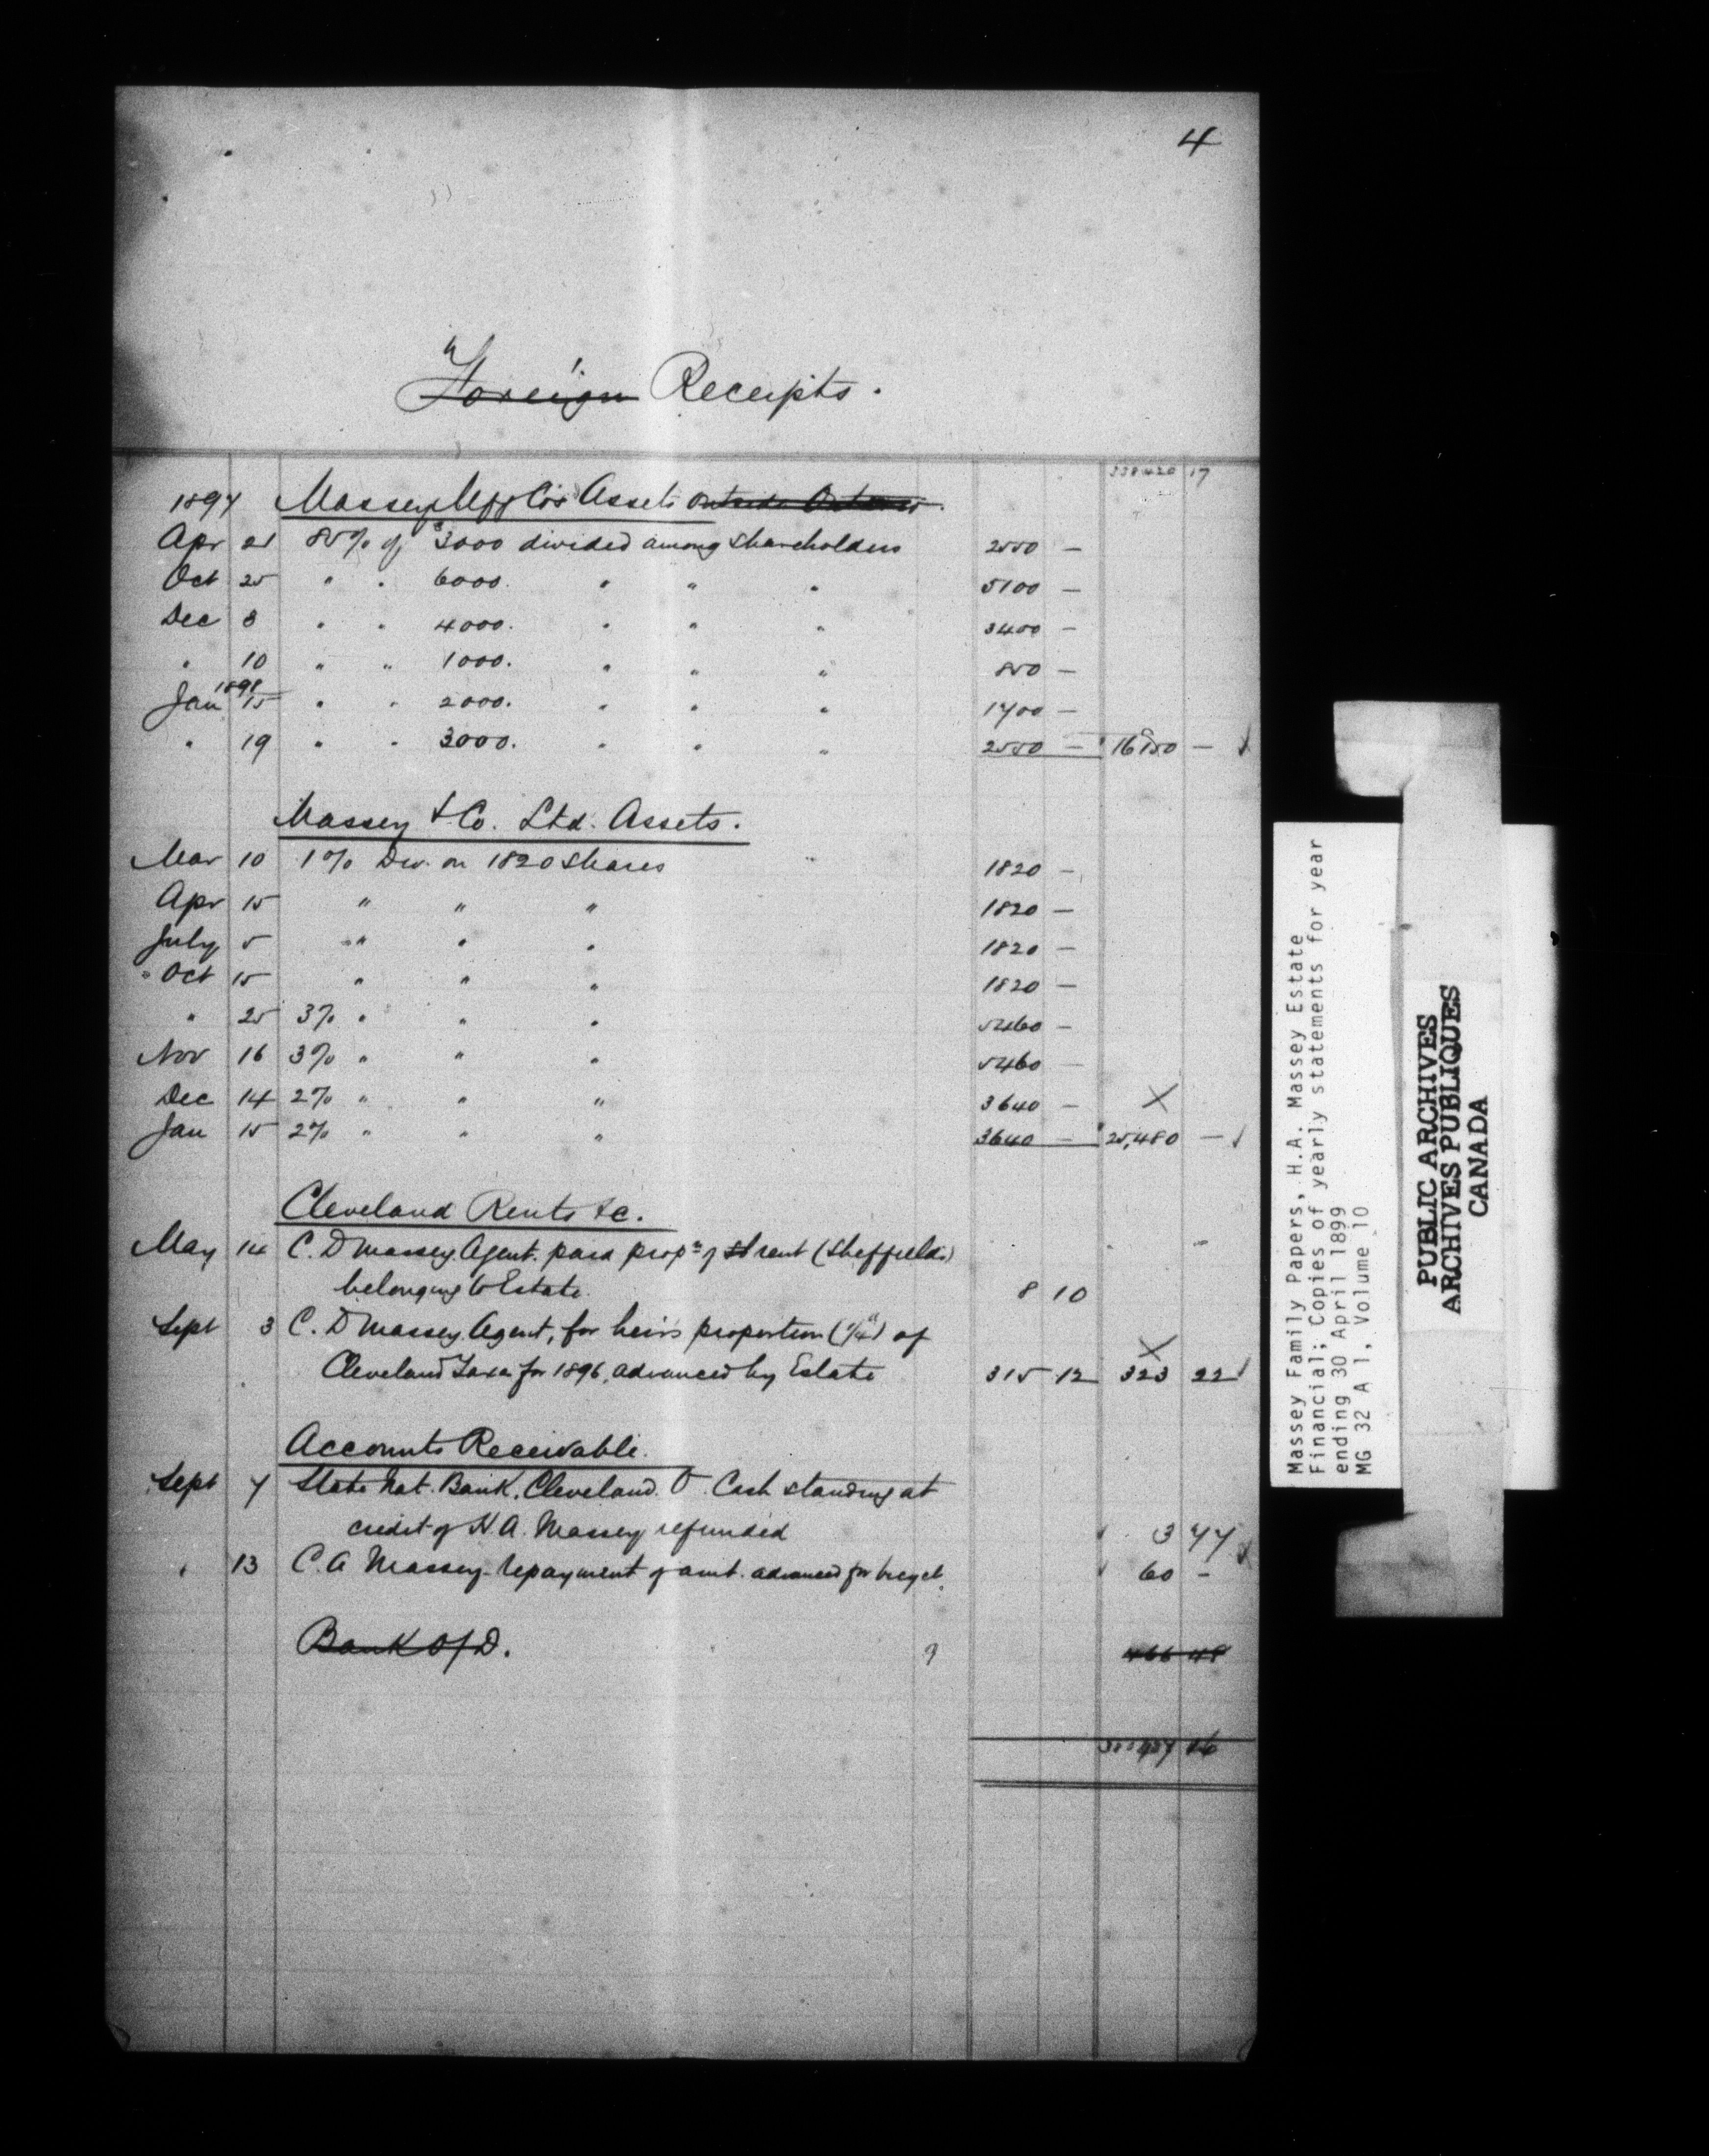 4
Foreign Receipts.
338420 17
1897 Massey Mfg Co's Assets outside Ontario.
Apr 21 85% of $3000 divided among Shareholders 2550 —
Oct 25 " " 6000. " " " 5100 —
Dec 8 " " 4000. " " " 3400 —
" 10 " " 1000. " " " 850 —
1898
Jan 15 " " 2000. " " " 1700 —
" 19 " " 3000. " " " 2550 — 16150 —
Massey & Co. Ltd. Assets.
Mar 10 1% Div. on 1820 Shares 1820 —
Apr 15 " " " 1820 —
July 5 " " " 1820 —
" Oct 15 " " " 1820 —
" 25 3% " " " 5460 —
Nov 16 3% " " " 5460 —
Dec 14 2% " " " 3640 — X
Jan 15 2% " " " 3640 — 25,480 — ✓
Cleveland Rents &c.
May 14 C. D Massey Agent. paid prop'n of rent (Sheffields)
belonging to Estate. 8 10
Sept 3 C. D Massey Agent, for heirs proportion of X
Cleveland Taxes for 1896, advanced by Estate 315 12 323 22 ✓
Accounts Receivable.
Sept 7 State Nat. Bank, Cleveland. O. Cash standing at
credit of H. A. Massey refunded 3 77
" 13 C. A Massey - repayment of amt. advanced for bicycle 60 —
Bank of D. ? 466 48
Massey Family Papers, H.A. Massey Estate
Financial; Copies of yearly statements for year
ending 30 April 1899
MG 32 A 1, Volume 10
PUBLIC ARCHIVES
ARCHIVES PUBLIQUES
CANADA